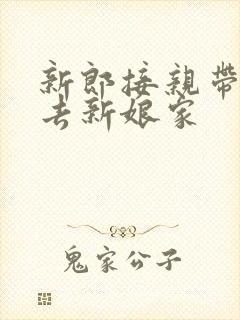 新郎接親帶
去新娘家
鬼家公子